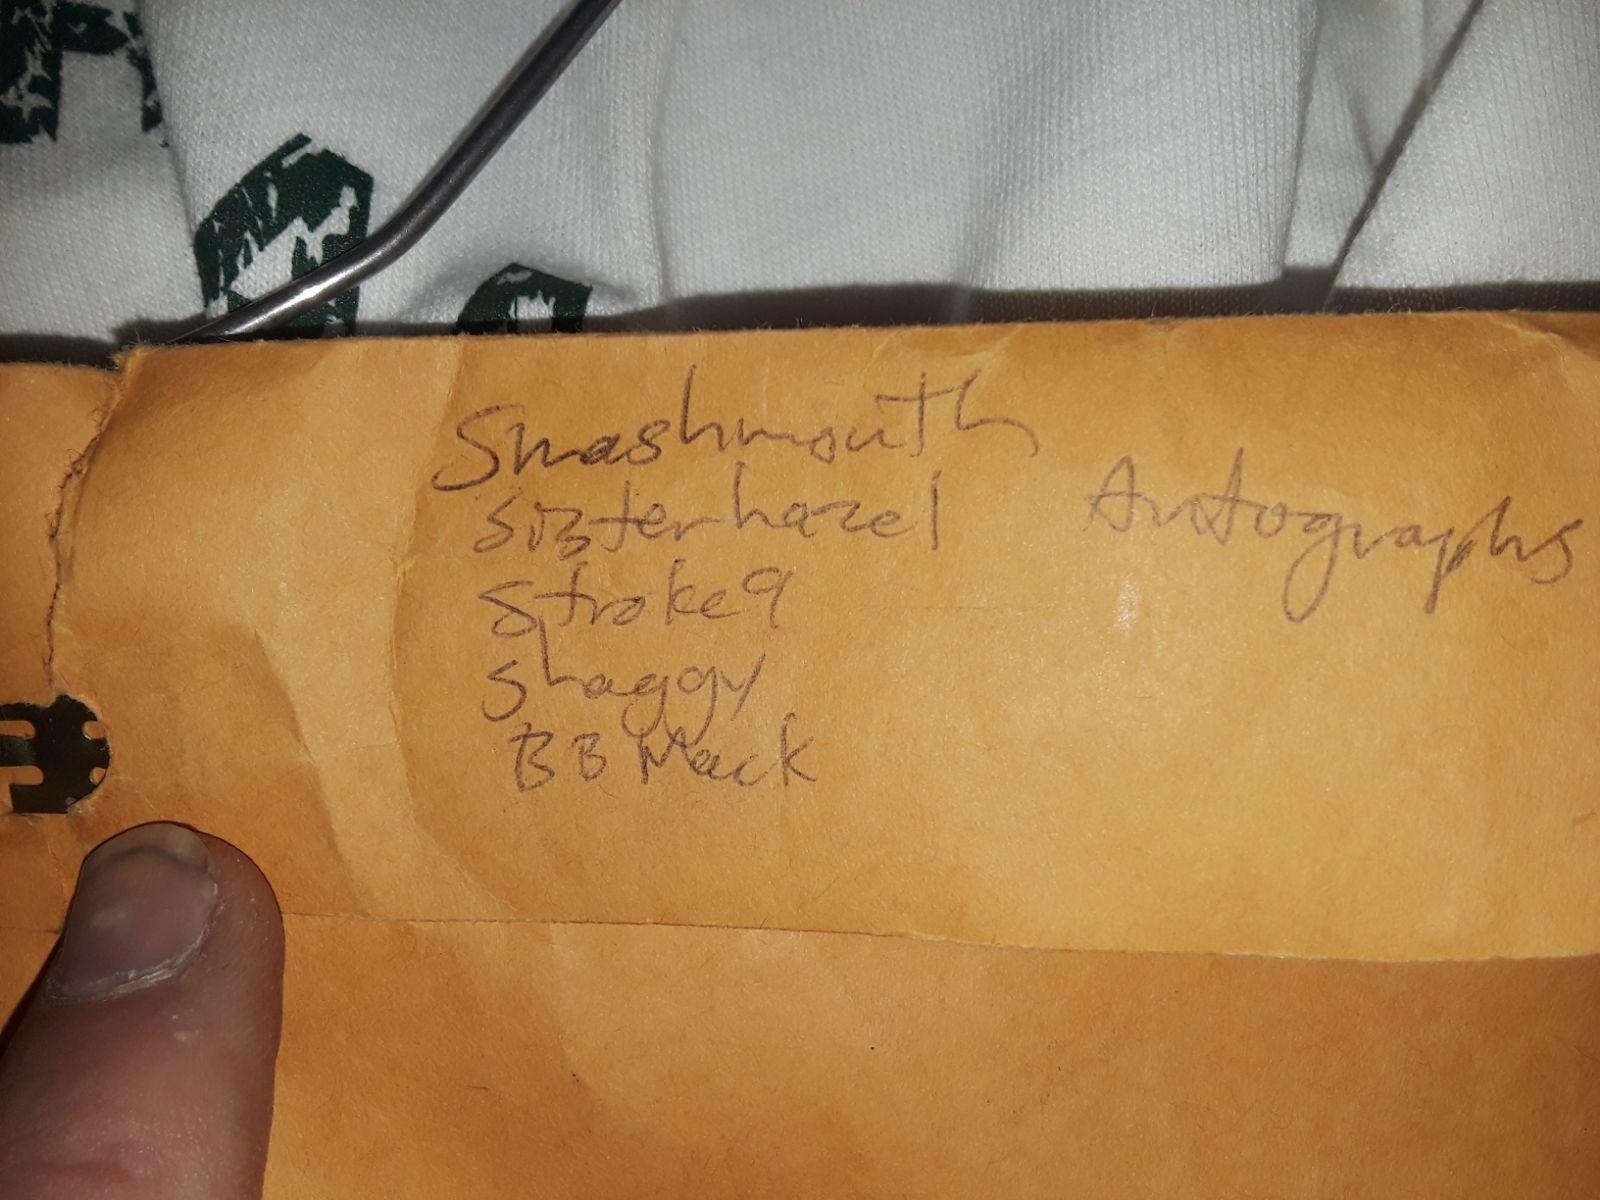 Smashmouth
Sisterhazel
Autographs
Stroke9
Shaggy
BB Mack